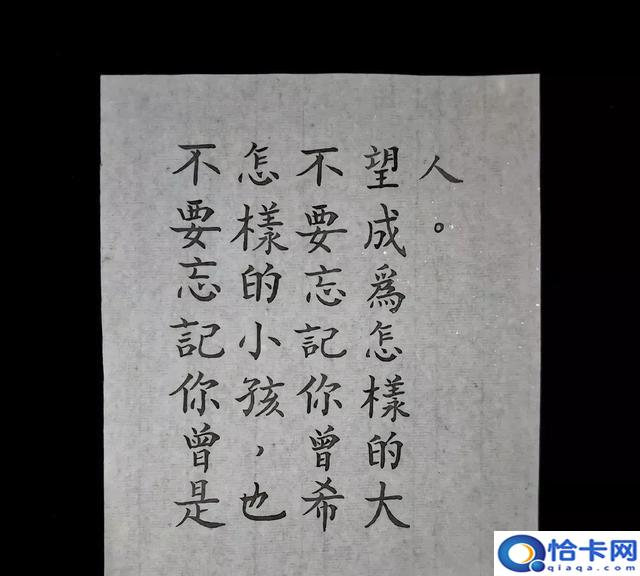 不要忘記你曾是
怎樣的小孩，也
不要忘記你曾希
望成爲怎樣的大
人。
恰卡网
qiaqa.com